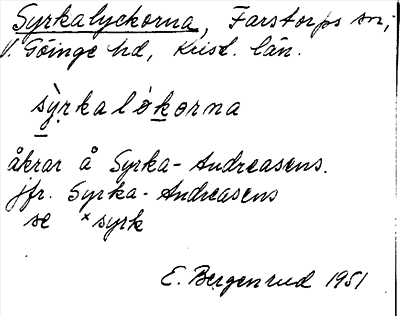 Syrkalyckorna, Farstorps sn,
V. Göinge hd, Krist. län.
sỳrkalókorna
åkrar å Syrka-Andreasens.
jfr. Syrka-Andreasens
se *syrk
E. Bergenrud 1951